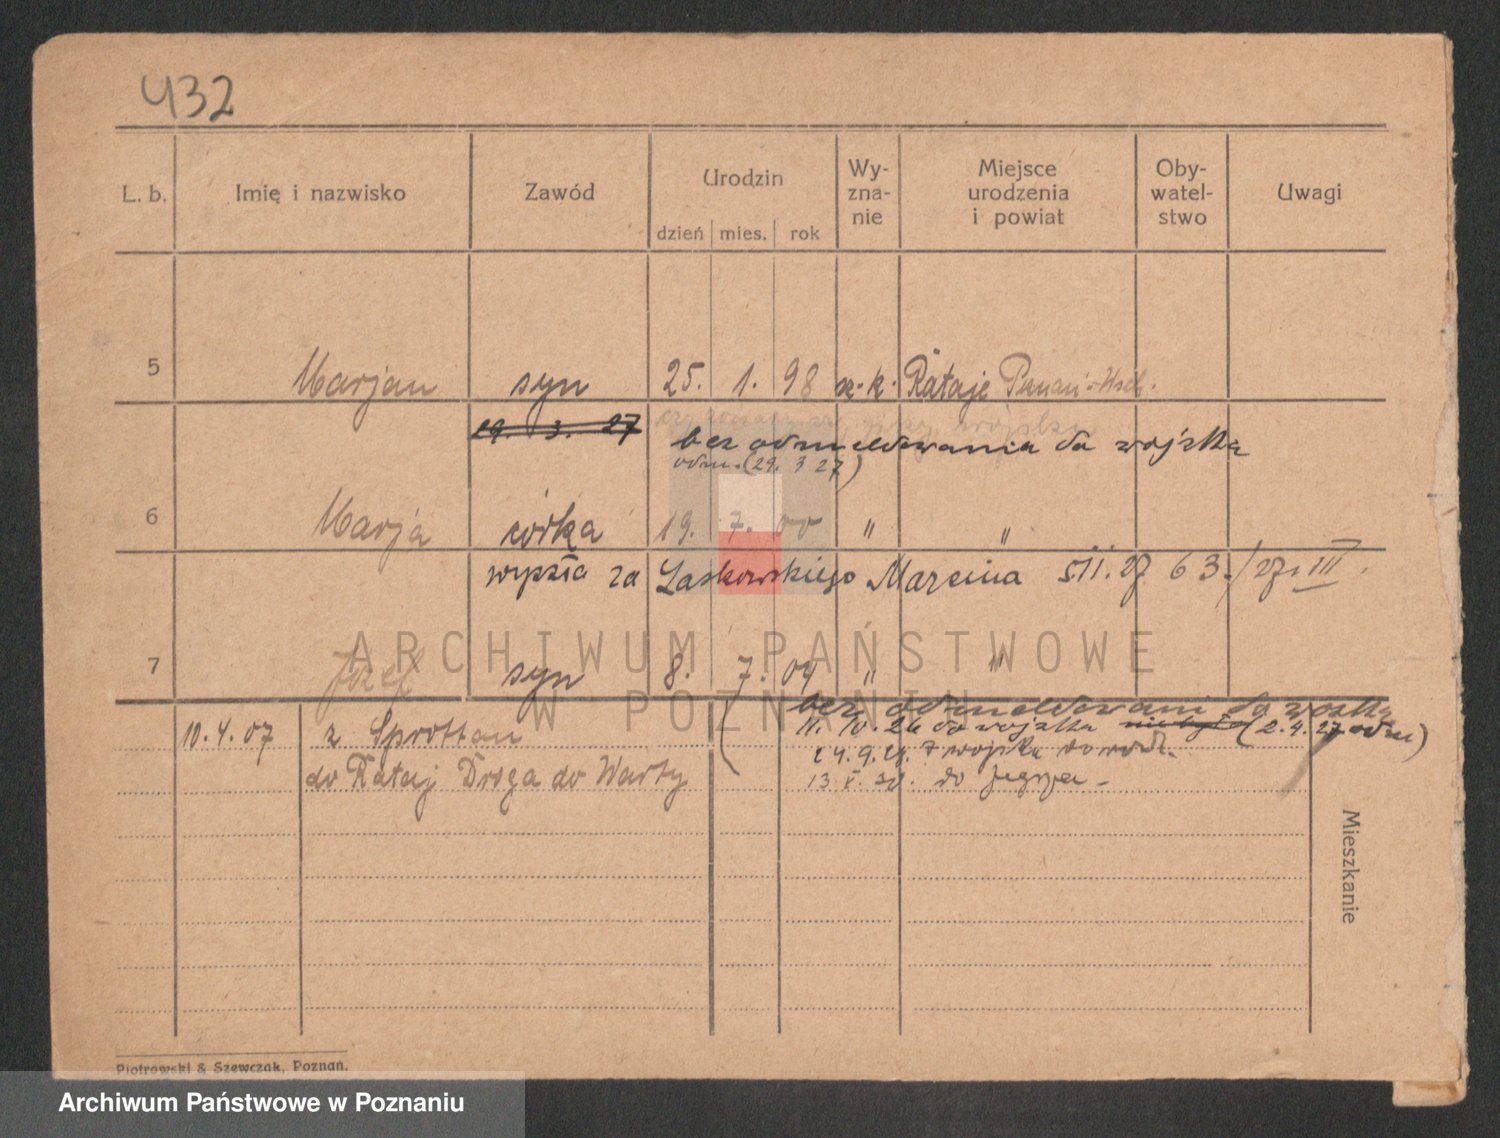 432
L. b. Imię i nazwisko Zawód Urodzin dzień mies. rok Wy-zna-nie Miejsce urodzenia i powiat Oby-watel-stwo Uwagi
5 Marjan syn 25. 1. 98 rz. k. Rataje Poznań-Wsch.
29. 3. 27 bez odmeldowania do wojska
odm. (29. 3 27)
6 Marja córka 19. 7. 00 " "
wyszła za Laskowskiego Marcina 5 II. 27 63./27 III.
ARCHIWUM PAŃSTWOWE
7 Józef syn 8. 7. 04 " "
W POZNANIU
bez odmeldowani do wojska
10.4.07 z Sprottau
11. IV. 26 do wojska (2.4.27 odm)
24.9.27. z wojska
do Rataj Droga do Warty
13.X. do
Mieszkanie
Piotrowski & Szewczak, Poznań.
Archiwum Państwowe w Poznaniu